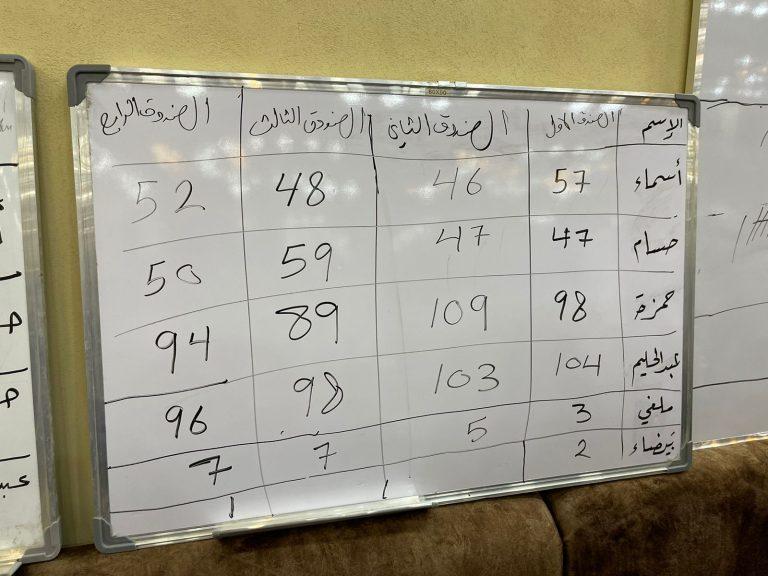 الإسم الصندق الاول الصندوق الثاني الصندوق الثالث الصندوق الرابع
أسماء 57 46 48 52
حسام 47 47 59 50
حمزة 98 109 89 94
عبدالحليم 104 103 98 96
ملغي 3 5 7 7
بيضاء 2